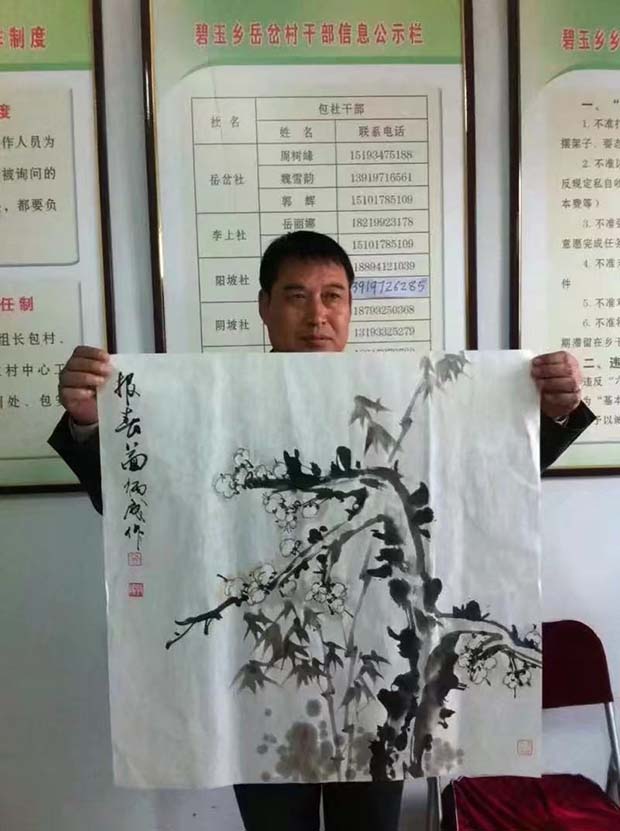 作制度
度
作人员为
被询问的
，都要负
任制
组长包村、
村中心工
处、包
碧玉乡岳岔村干部信息公示栏
社 名
包社干部
姓 名
联系电话
岳岔社
周树峰
15193475188
魏雪韵
13919716561
郭 辉
15101785109
李上社
岳丽娜
18219923178
15101785109
阳坡社
18894121039
3919726285
阴坡社
18793250368
13193325279
碧玉乡乡
一、“
1．不准打
摆架子、耍态
2．不准以
反规定私自收
本费等）
3．不准强
意愿完成任务
4．不准
件
5．不准
6．不准
期滞留在乡
二、违
违反“六
为“基本
予以诫
报春图炳成作